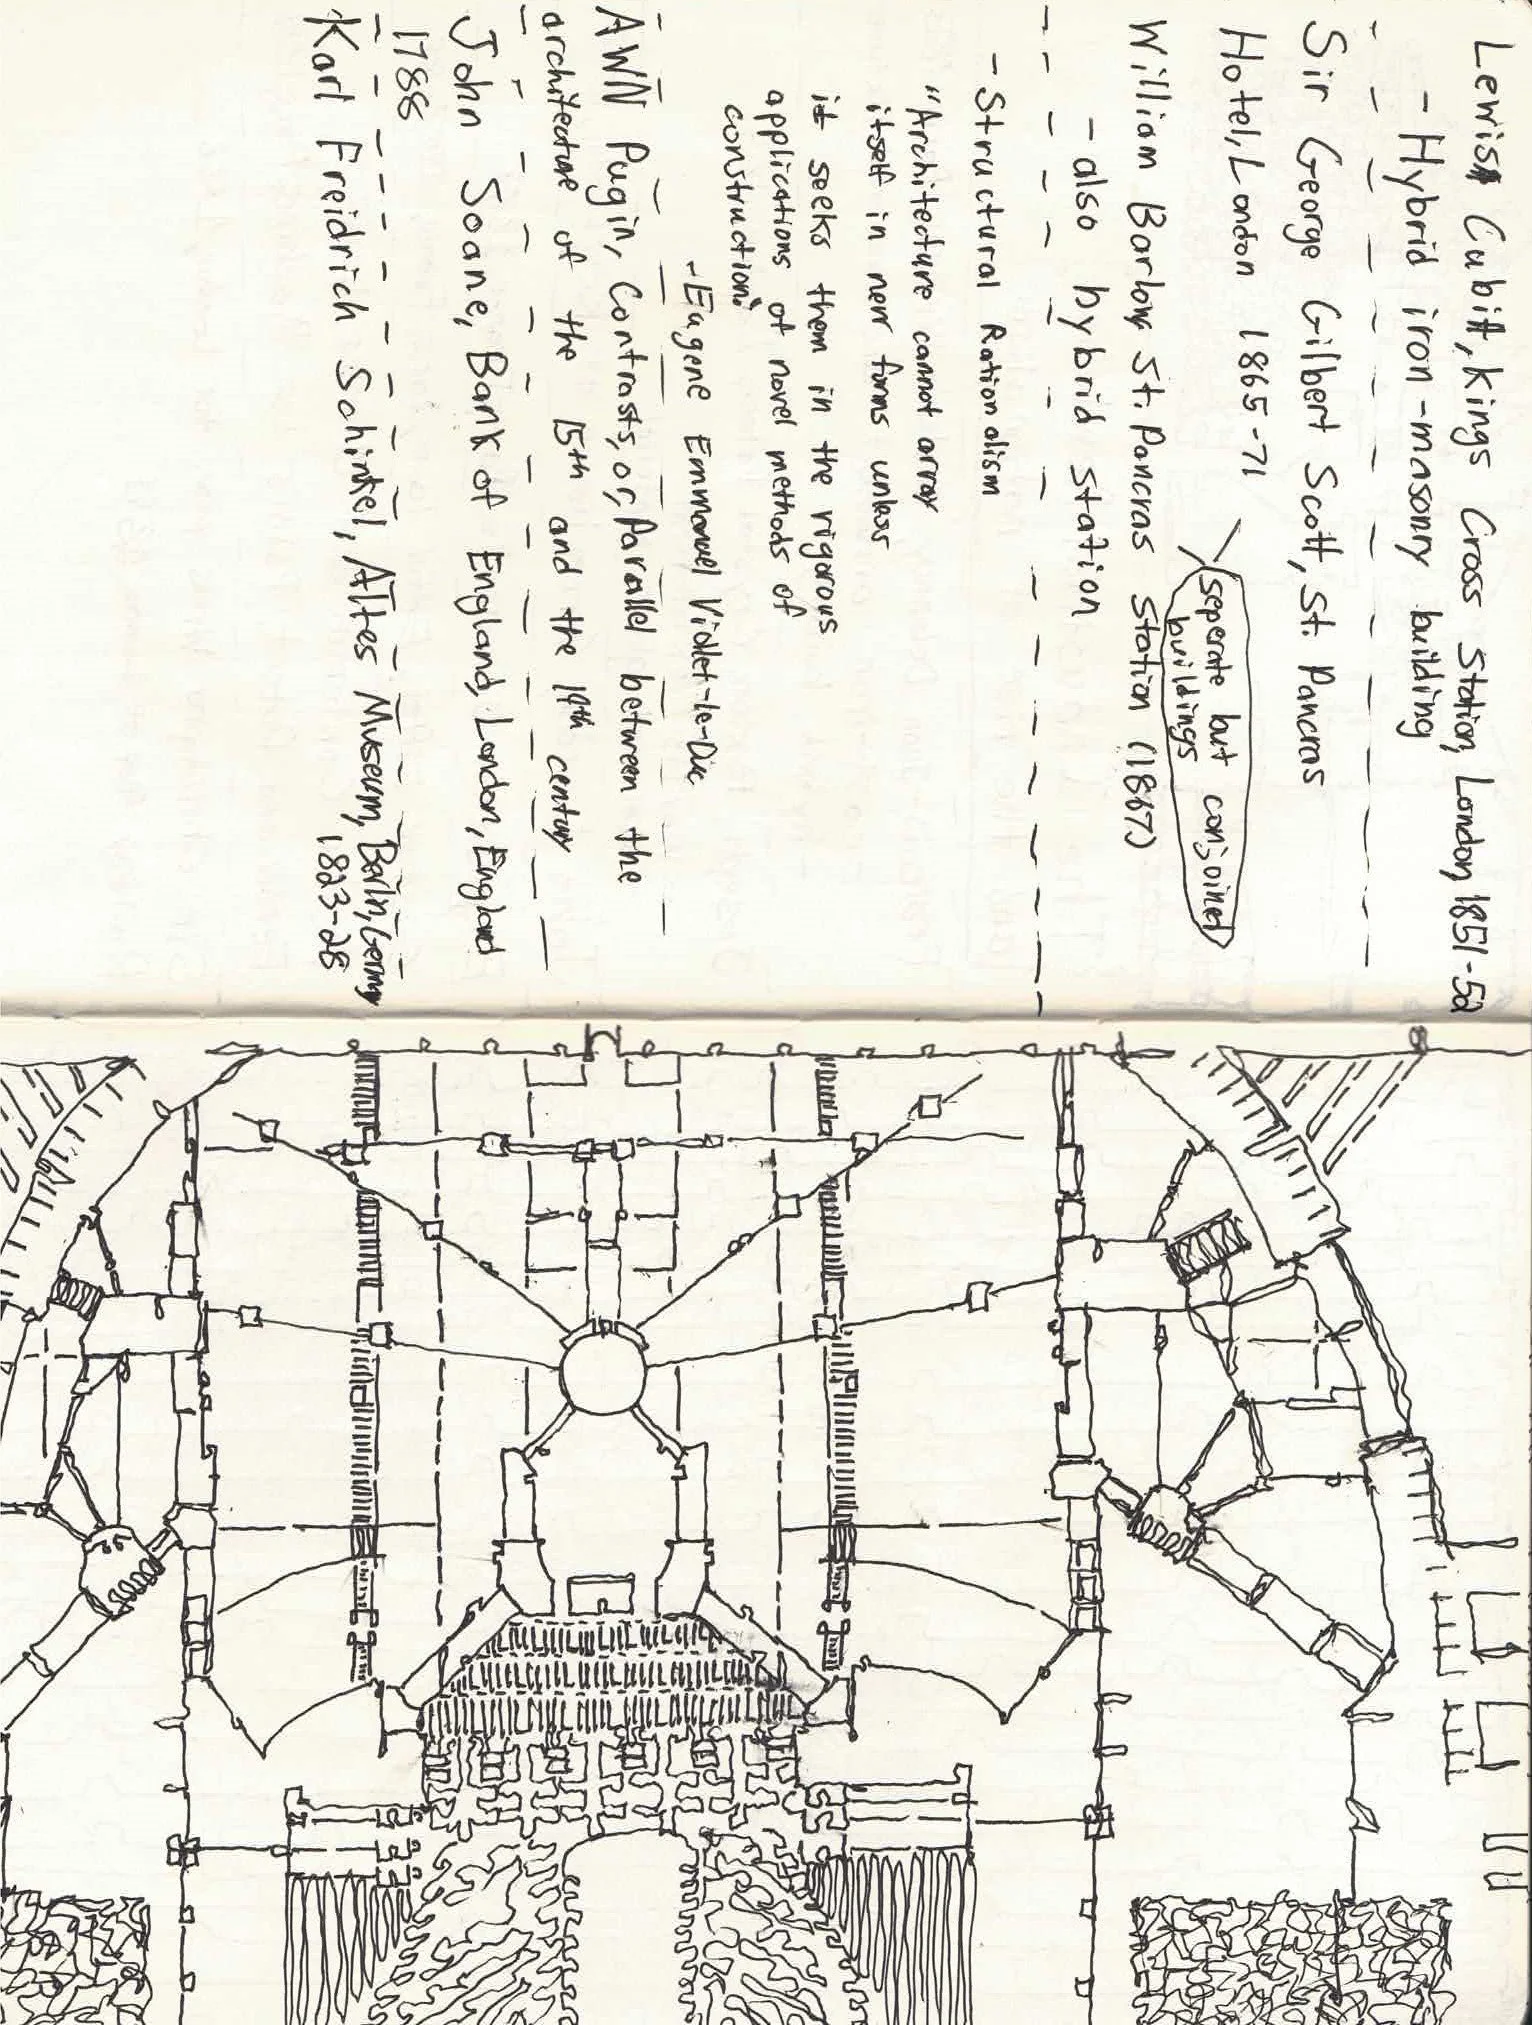 Lewis Cubitt, Kings Cross Station, London, 1851-52
- Hybrid iron-masonry building
Sir George Gilbert Scott, St. Pancras
Hotel, London 1865-71
seperate but conjoined
buildings
William Barlow, St. Pancras Station (1867)
- also hybrid station
- Structural Rationalism
"Architecture cannot array
itself in new forms unless
it seeks them in the rigorous
applications of novel methods of
construction."
- Eugene Emmanuel Viollet-le-Duc
AWN Pugin, Contrasts, or, Parallel between the
architecture of the 15th and the 19th century
John Soane, Bank of England, London, England
1788
Karl Freidrich Schinkel, Altes Museum, Berlin, Germany
1823-28